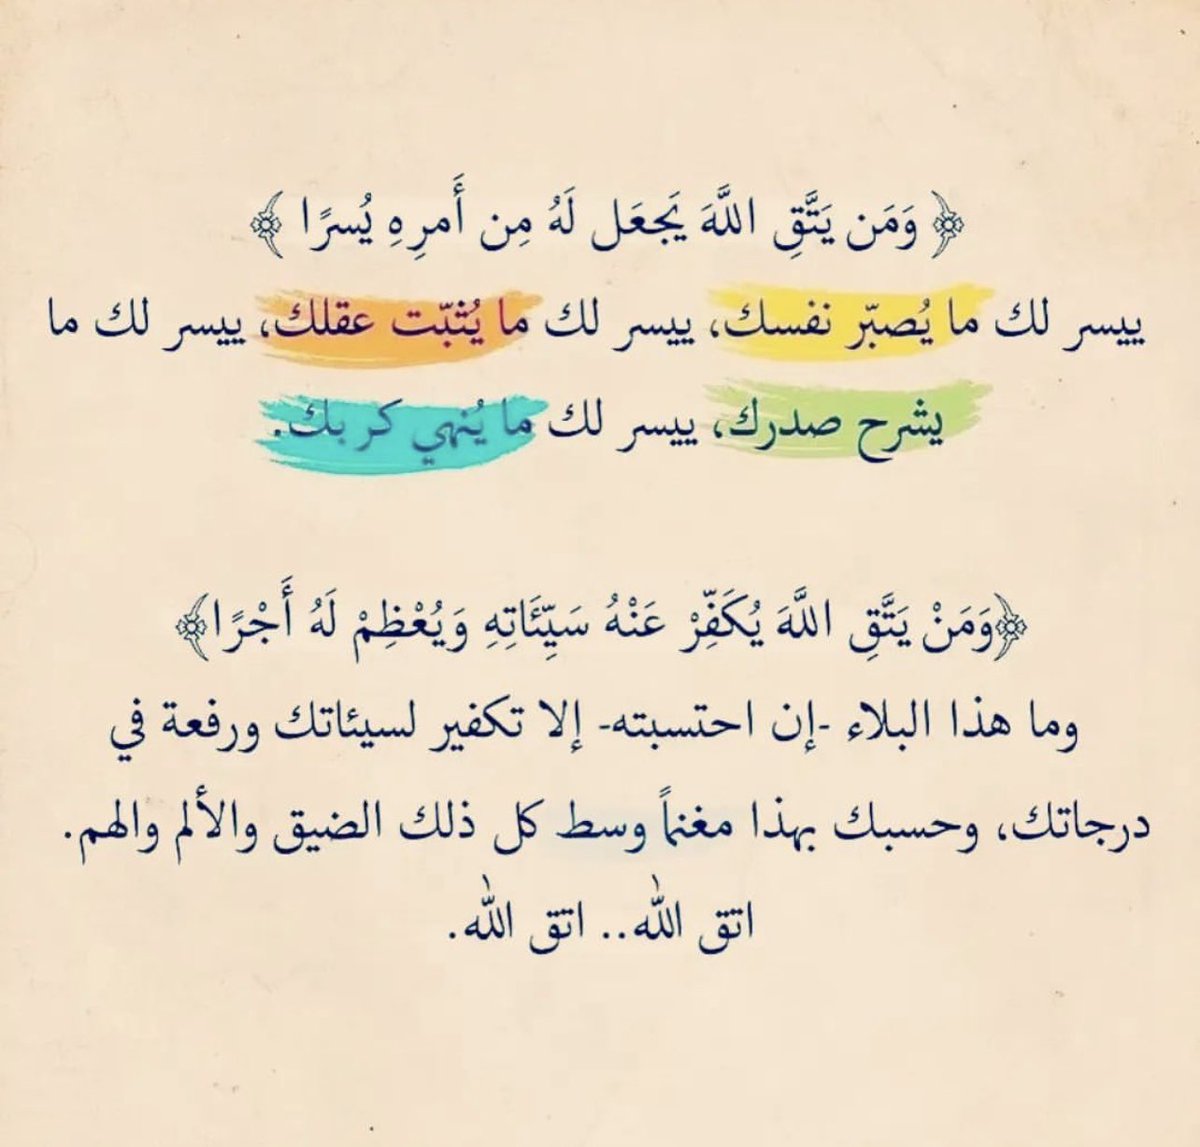 ﴿ وَمَن يَتَّقِ اللَّهَ يَجعَل لَهُ مِن أَمرِهِ يُسرًا ﴾
ييسر لك ما يُصبّر نفسك، ييسر لك ما يُثبّت عقلك، ييسر لك ما
يشرح صدرك، ييسر لك ما يُنهي كربك.
﴿وَمَنْ يَتَّقِ اللَّهَ يُكَفِّرْ عَنْهُ سَيِّئَاتِهِ وَيُعْظِمْ لَهُ أَجْرًا﴾
وما هذا البلاء -إن احتسبته- إلا تكفير لسيئاتك ورفعة في
درجاتك، وحسبك بهذا مغنماً وسط كل ذلك الضيق والألم والهم.
اتق الله.. اتق الله.